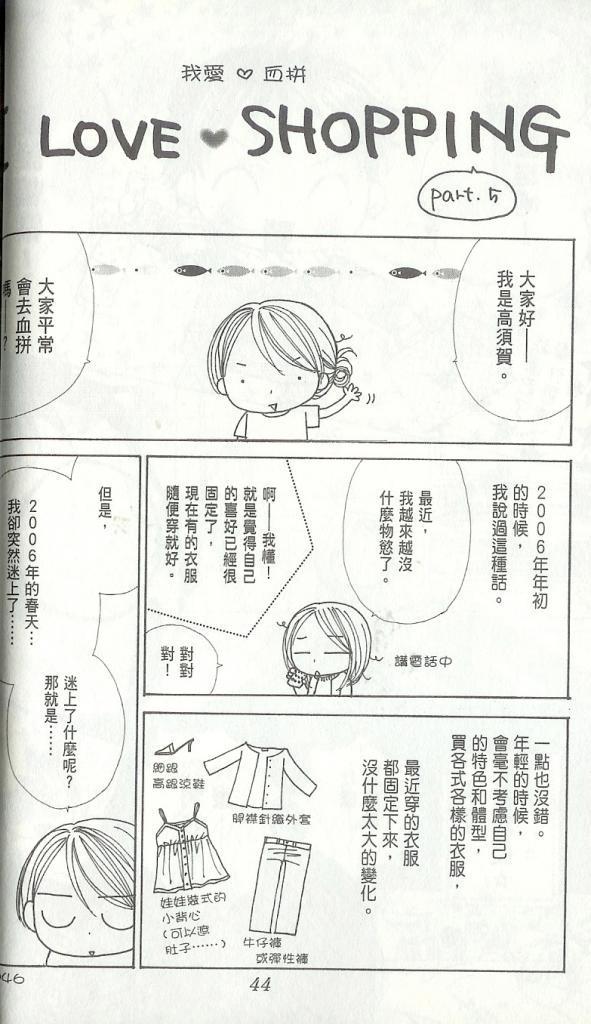 我愛♡血拼
LOVE ♥ SHOPPING
part.5
大家好——
我是高須賀。
大家平常
會去血拼
嗎——?
2006年年初
的時候，
我說過這種話。
最近，
我越來越沒
什麼物慾了。
講電話中
啊——我懂！
就是覺得自己
的喜好已經很
固定了，
現在有的衣服
隨便穿就好。
對對
對！
一點也沒錯。
年輕的時候，
會毫不考慮自己
的特色和體型，
買各式各樣的衣服，
最近穿的衣服
都固定下來，
沒什麼太大的變化。
細跟
高跟涼鞋
開襟針織外套
娃娃裝式的
小背心
(可以遮
肚子……)
牛仔褲
或彈性褲
但是，
2006年的春天…
我卻突然迷上了……
迷上了什麼呢?
那就是……
44